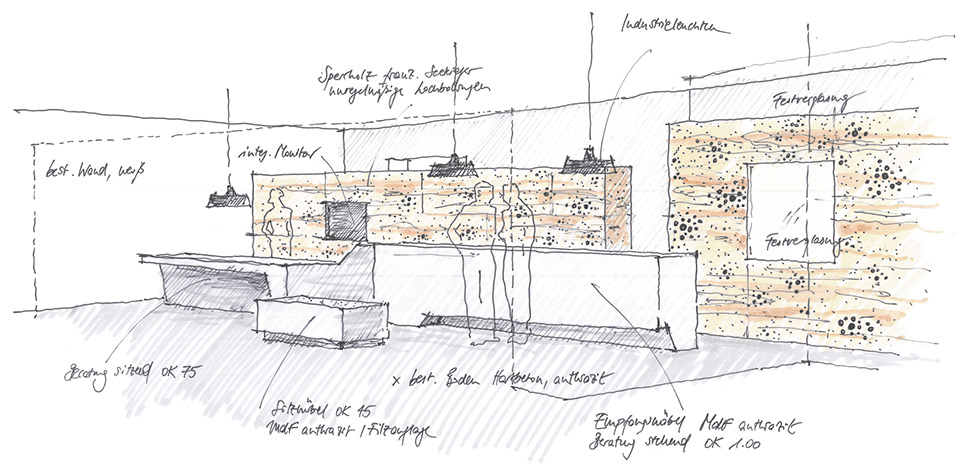 Industrieleuchten
Sperrholz franz. Seekiefer
unregelmäßige Lochbohrungen
Festverglasung
integ. Monitor
best. Wand, weiß
Festverglasung
Beratung sitzend OK 75
x best. Boden Hartbeton, anthrazit
Sitzmöbel OK 45
Mdf anthrazit / Filzauflage
Empfangsmöbel Mdf anthrazit
Beratung stehend OK 1.00